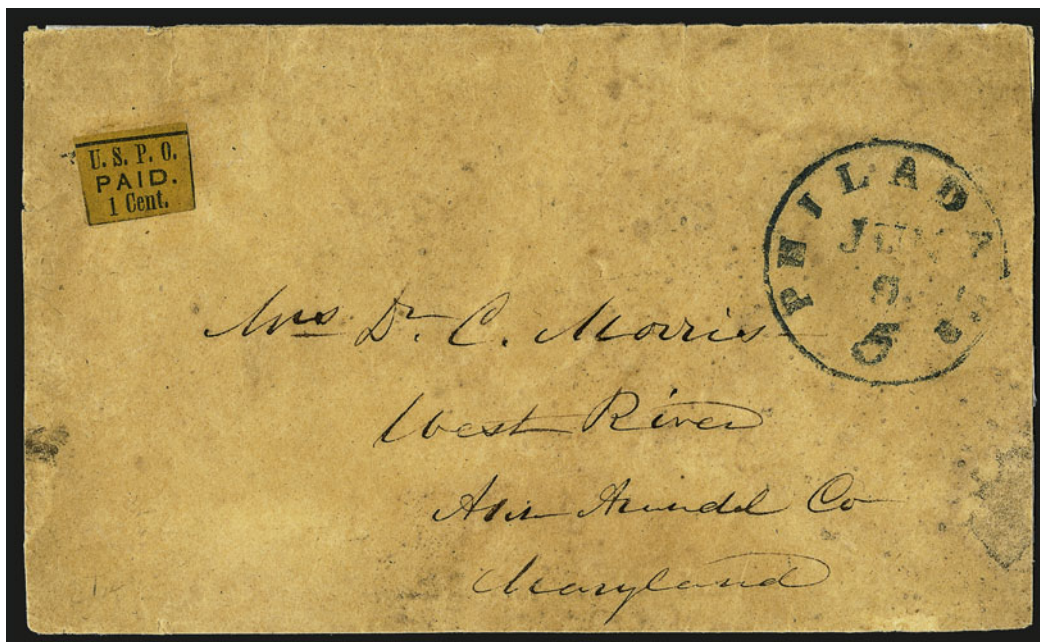 U. S. P. O.
PAID.
1 Cent.
PHILADA
JUN
9
5
Mrs Dr. C. Morris
West River
Ann Arundel Co
Maryland